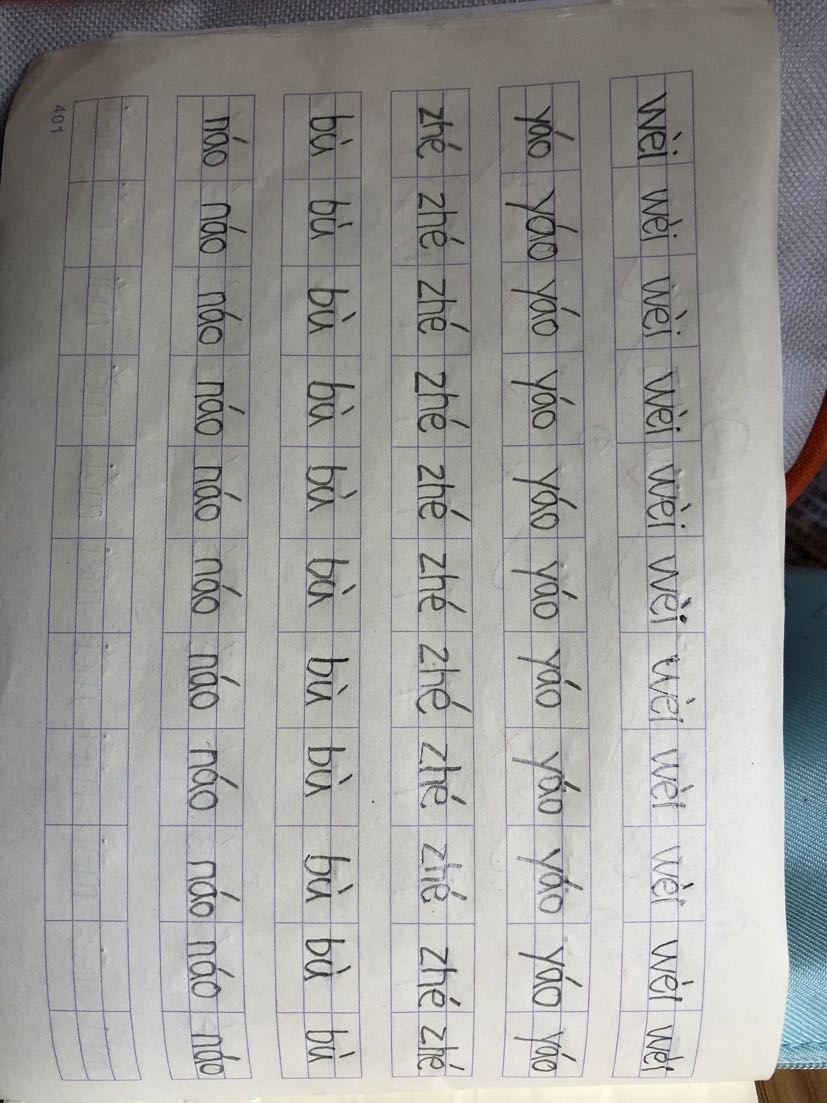 wèi wèi wèi wèi wèi wèi wèi wèi wèi wèi wèi
yáo yáo yáo yáo yáo yáo yáo yáo yáo yáo yáo
zhé zhé zhé zhé zhé zhé zhé zhé zhé zhé zhé
bù bù bù bù bù bù bù bù bù bù bù
náo náo náo náo náo náo náo náo náo náo náo
401